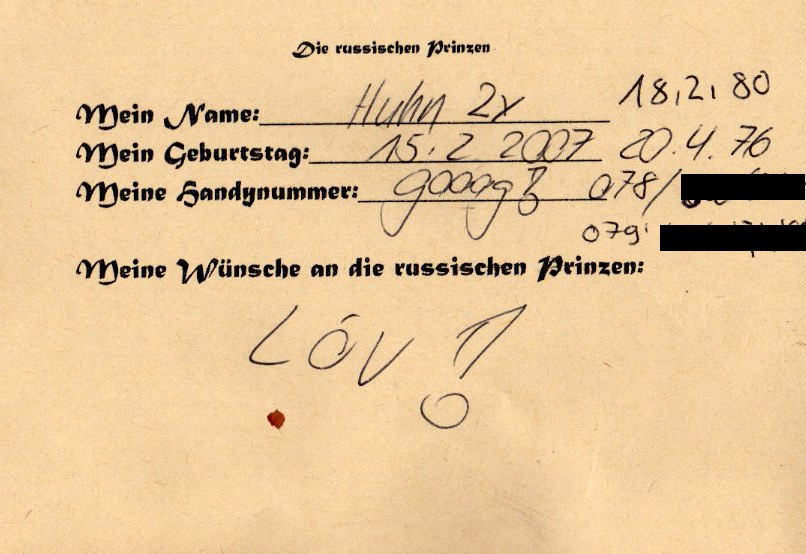 Die russischen Prinzen
Mein Name: Huhn 2x 18.2.80
Mein Geburtstag: 15.2 2007 20.4.76
Meine Handynummer: 078/
079
Meine Wünsche an die russischen Prinzen:
LÓV !